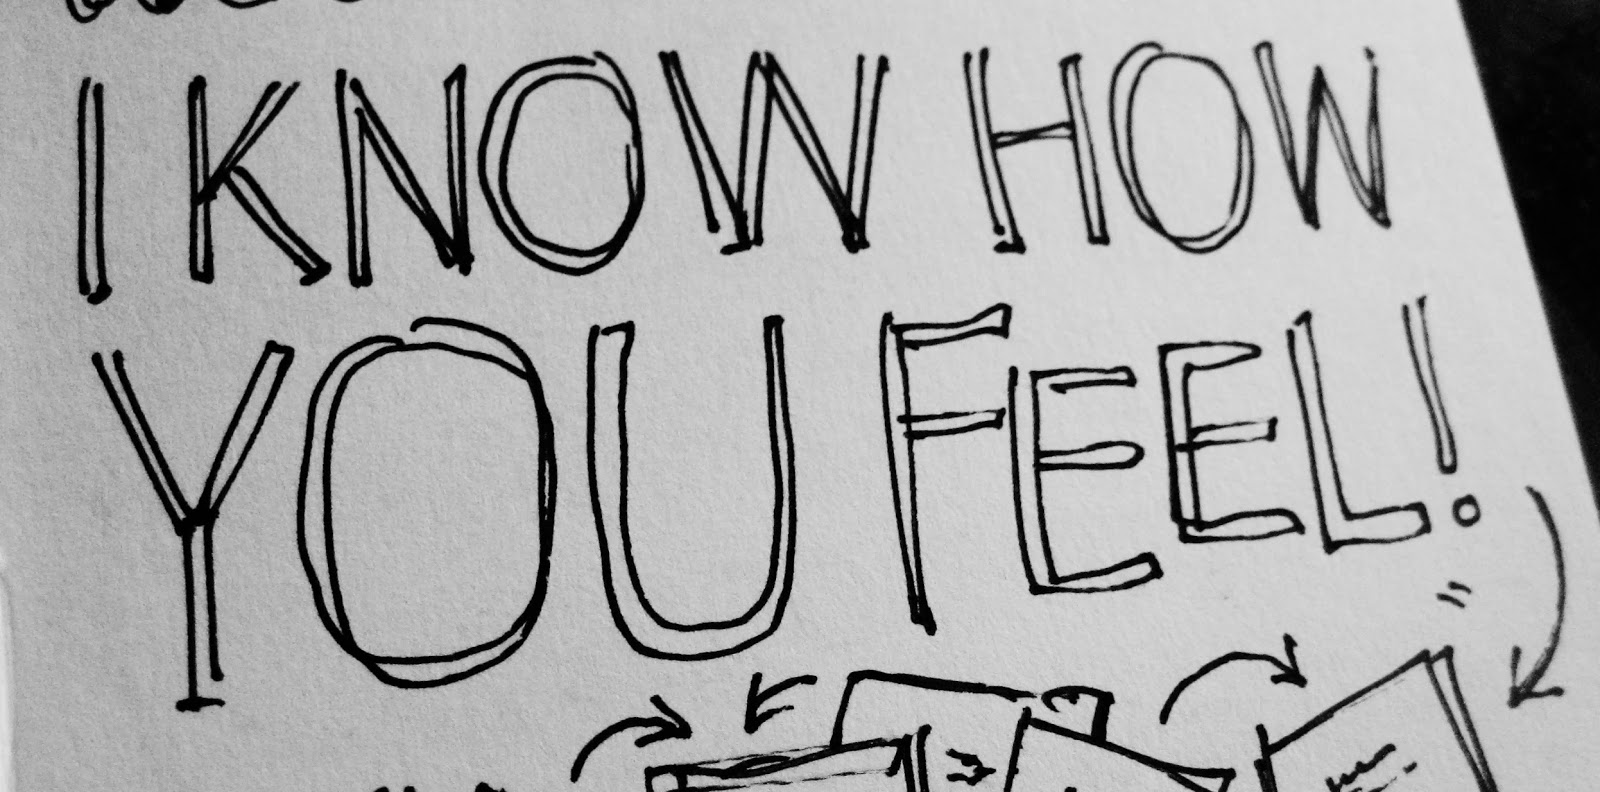 I KNOW HOW
YOU FEEL!